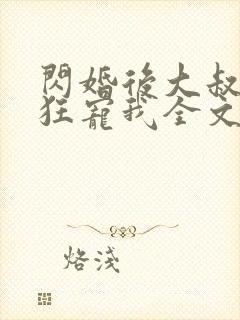 閃婚後大叔
狂寵我全文
烙淺